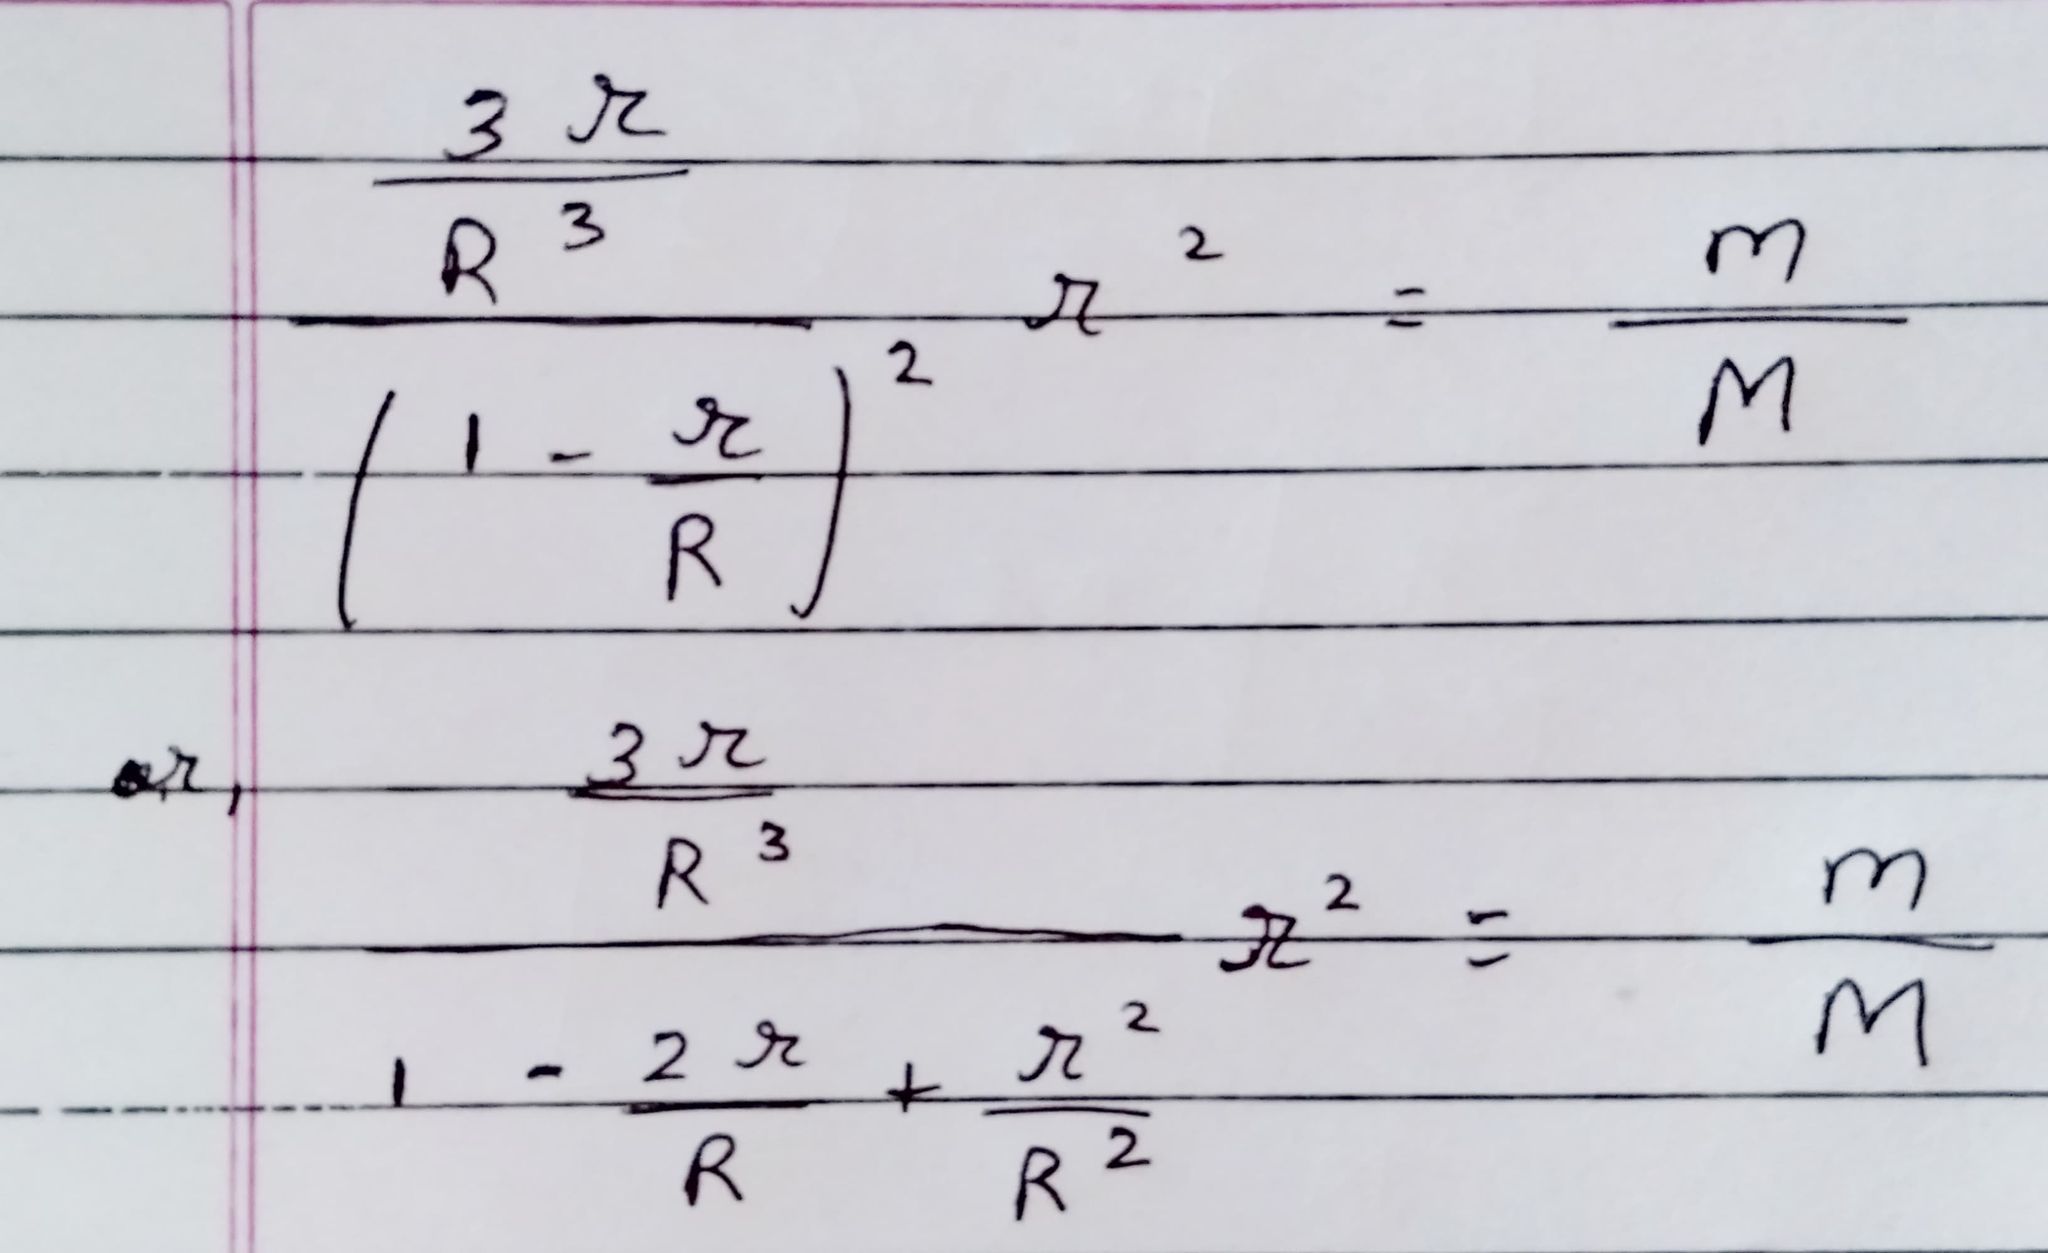 \frac{\frac{3r}{R^3}}{\left(1 - \frac{r}{R}\right)^2} r^2 = \frac{m}{M}
or, \frac{\frac{3r}{R^3}}{1 - \frac{2r}{R} + \frac{r^2}{R^2}} r^2 = \frac{m}{M}